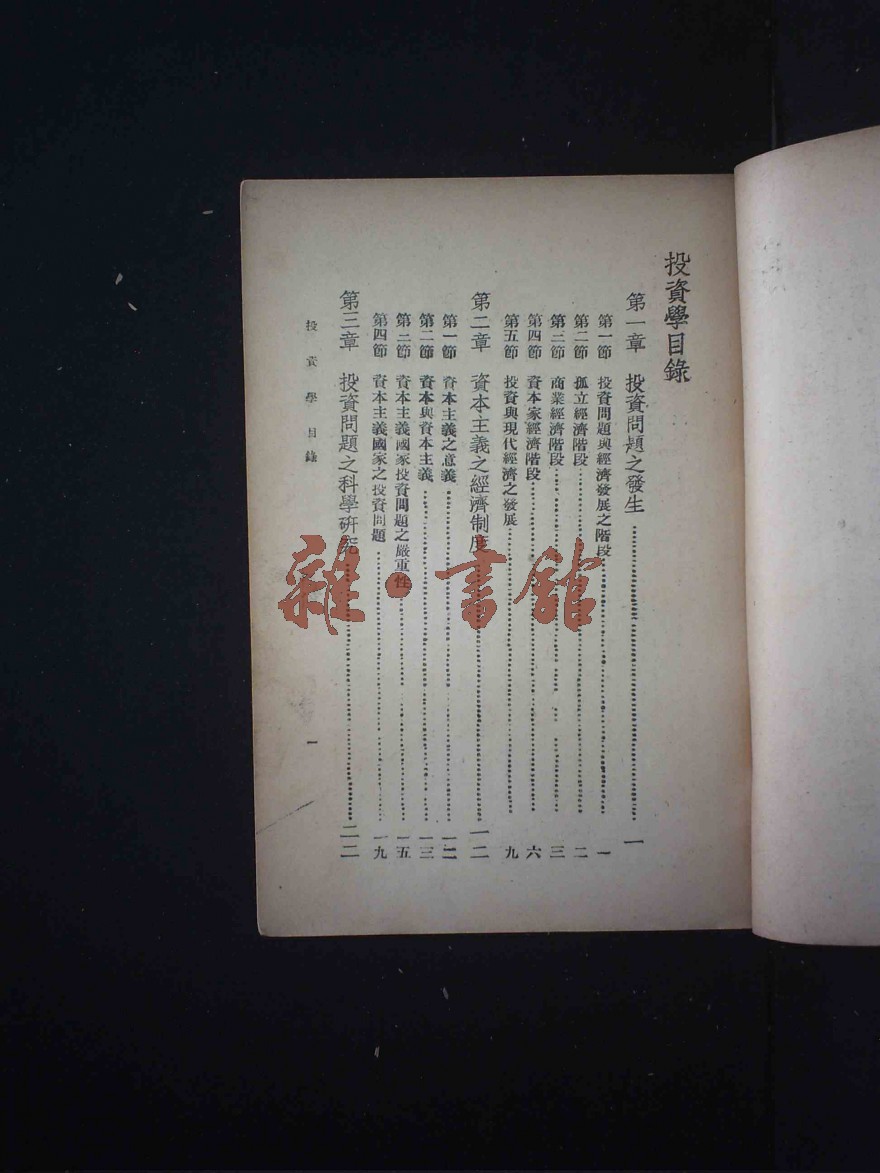 投資學目錄
第一章 投資問題之發生……一
第一節 投資問題與經濟發展之階段……一
第二節 孤立經濟階段……二
第三節 商業經濟階段……三
第四節 資本家經濟階段……六
第五節 投資與現代經濟之發展……九
第二章 資本主義之經濟制度……一二
第一節 資本主義之意義……一二
第二節 資本與資本主義……一三
第三節 資本主義國家投資問題之嚴重性……一五
第四節 資本主義國家之投資問題……一九
第三章 投資問題之科學研究……二二
投資學目錄
一
雜·書館